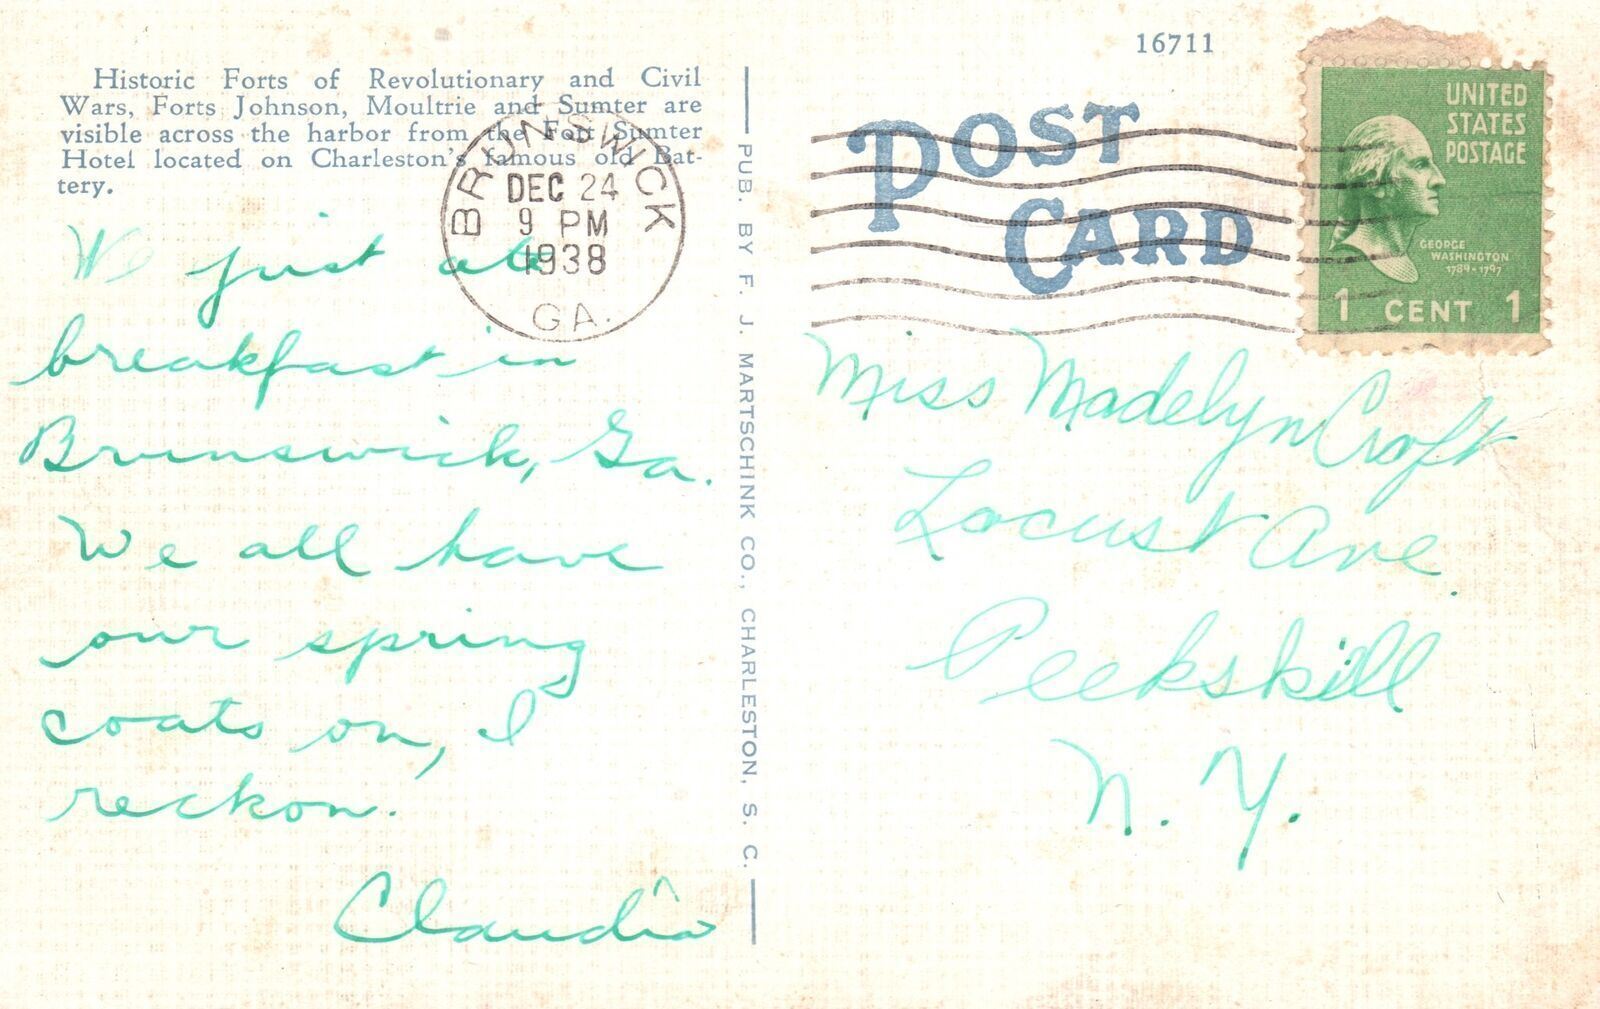 16711
Historic Forts of Revolutionary and Civil
Wars, Forts Johnson, Moultrie and Sumter are
visible across the harbor from the Fort Sumter
Hotel located on Charleston's famous old Bat-
tery.
BRUNSWICK
DEC 24
9 PM
1938
GA.
POST
CARD
UNITED
STATES
POSTAGE
GEORGE
WASHINGTON
1789-1797
1 CENT 1
We just ate
breakfast in
Brunswick, Ga.
We all have
our spring
coats on, I
reckon.
Claudia
PUB. BY F. J. MARTSCHINK CO., CHARLESTON, S. C.
Miss Madelyn Croft
Locust Ave.
Peekskill
N. Y.